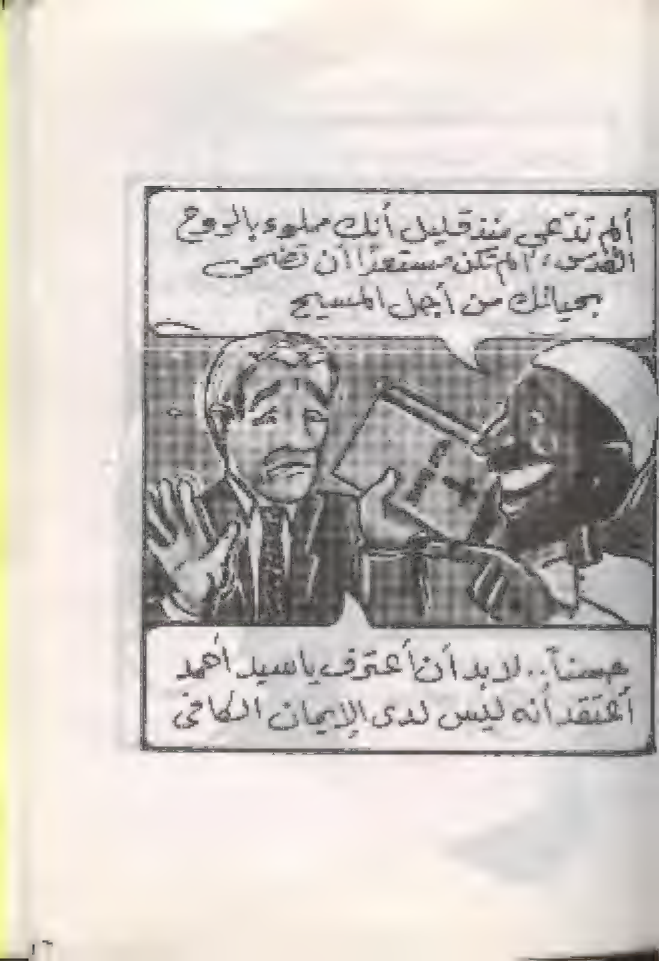 ألم تدّعي منذ قليل أنك مملوء بالروح
القدس، ألم تكن مستعدًا أن تضحى
بحياتك من أجل المسيح
حسناً.. لابد أن أعترف ياسيد أحمد
أعتقد أنه ليس لدى الإيمان الكافى
١٦